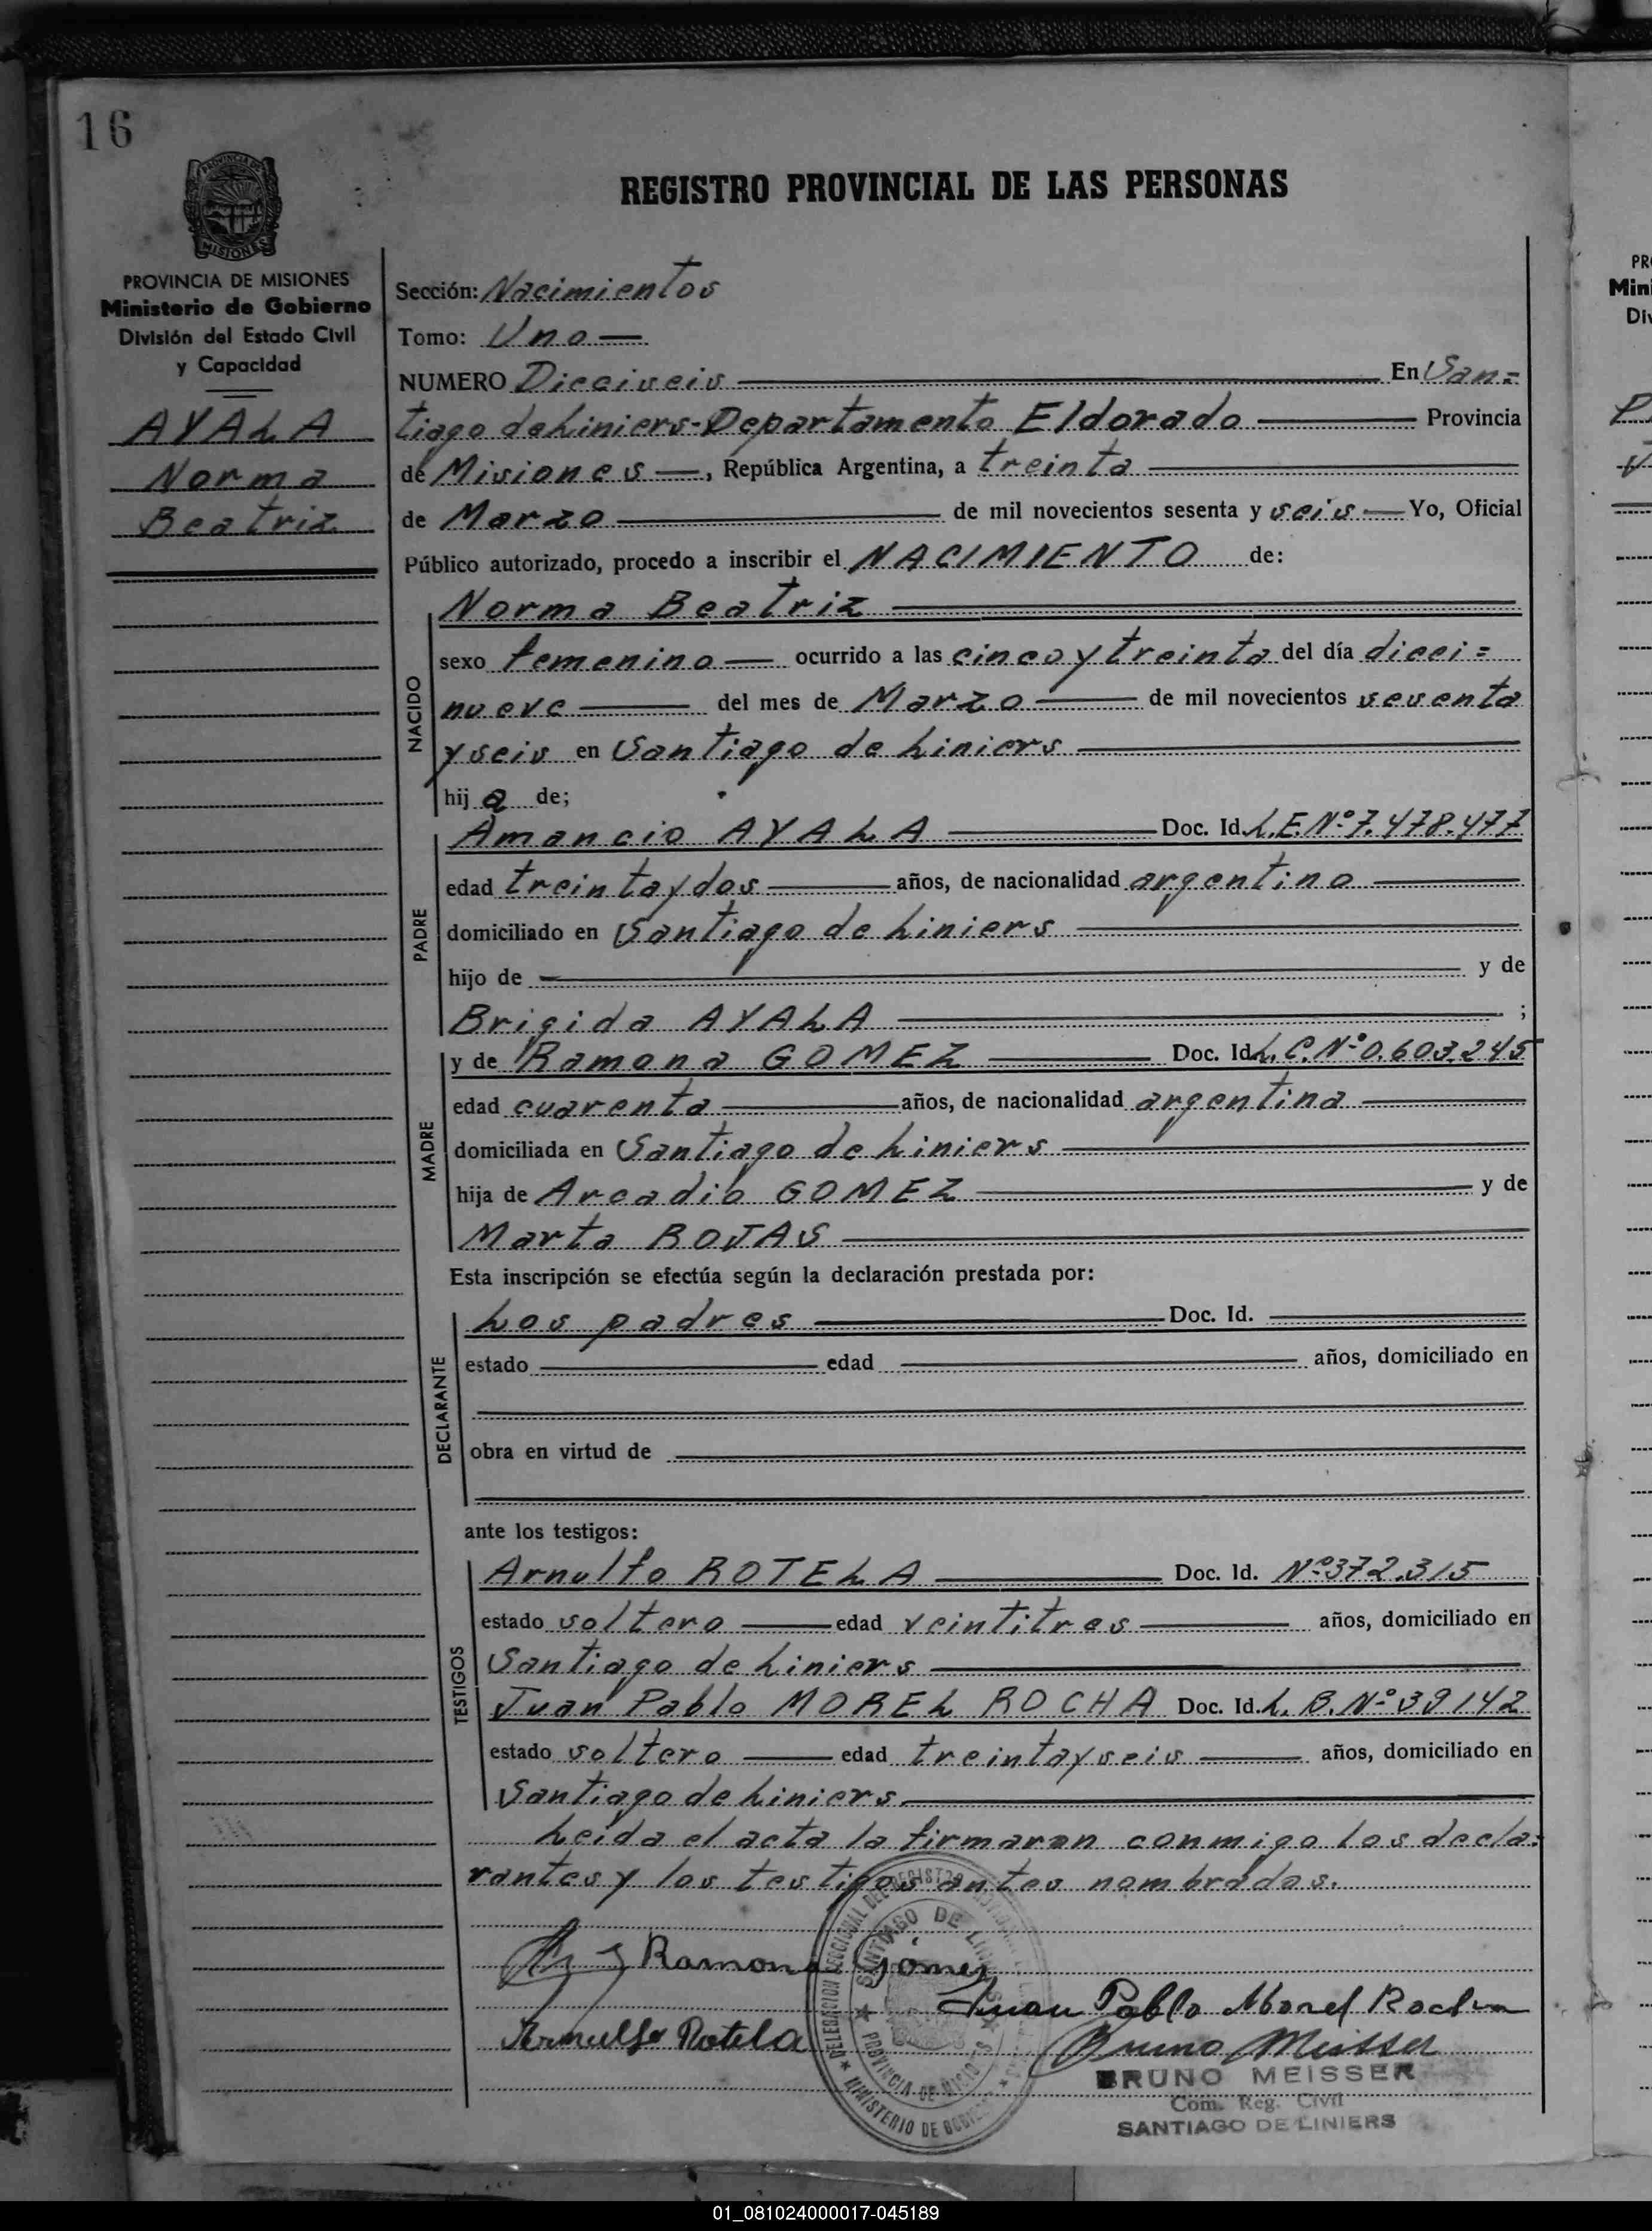 16
PROVINCIA DE
MISIONES
REGISTRO PROVINCIAL DE LAS PERSONAS
PROVINCIA DE MISIONES
Ministerio de Gobierno
División del Estado Civil
y Capacidad
AYALA
Norma
Beatriz
Sección: Nacimientos
Tomo: Uno
NUMERO Dieciseis En San=
tiago de Liniers-Departamento Eldorado Provincia
de Misiones, República Argentina, a treinta
de Marzo de mil novecientos sesenta y seis Yo, Oficial
Público autorizado, procedo a inscribir el NACIMIENTO de:
NACIDO
Norma Beatriz
sexo femenino ocurrido a las cinco y treinta del día dieci=
nueve del mes de Marzo de mil novecientos sesenta
y seis en Santiago de Liniers
hija de;
PADRE
Amancio AYALA Doc. Id. L.E.Nº 7.478.477
edad treinta y dos años, de nacionalidad argentino
domiciliado en Santiago de Liniers
hijo de y de
Brigida AYALA ;
MADRE
y de Ramona GOMEZ Doc. Id. L.C.Nº 0.603.245
edad cuarenta años, de nacionalidad argentina
domiciliada en Santiago de Liniers
hija de Arcadio GOMEZ y de
Marta ROJAS
Esta inscripción se efectúa según la declaración prestada por:
DECLARANTE
Los padres Doc. Id.
estado edad años, domiciliado en
obra en virtud de
ante los testigos:
TESTIGOS
Arnulfo ROTELA Doc. Id. Nº 372.315
estado soltero edad veintitres años, domiciliado en
Santiago de Liniers
Juan Pablo MOREL ROCHA Doc. Id. L.B.Nº 39142
estado soltero edad treinta y seis años, domiciliado en
Santiago de Liniers.
Leida el acta la firmaron conmigo los decla=
rantes y los testigos antes nombrados.
Ramona Gómez
Juan Pablo Morel Rocha
Arnulfo Rotela
Bruno Meisser
SANTIAGO DE LINIERS
PROVINCIA DE MISIONES
MINISTERIO DE GOBIERNO
BRUNO MEISSER
Com. Reg. Civil
SANTIAGO DE LINIERS
01_081024000017-045189